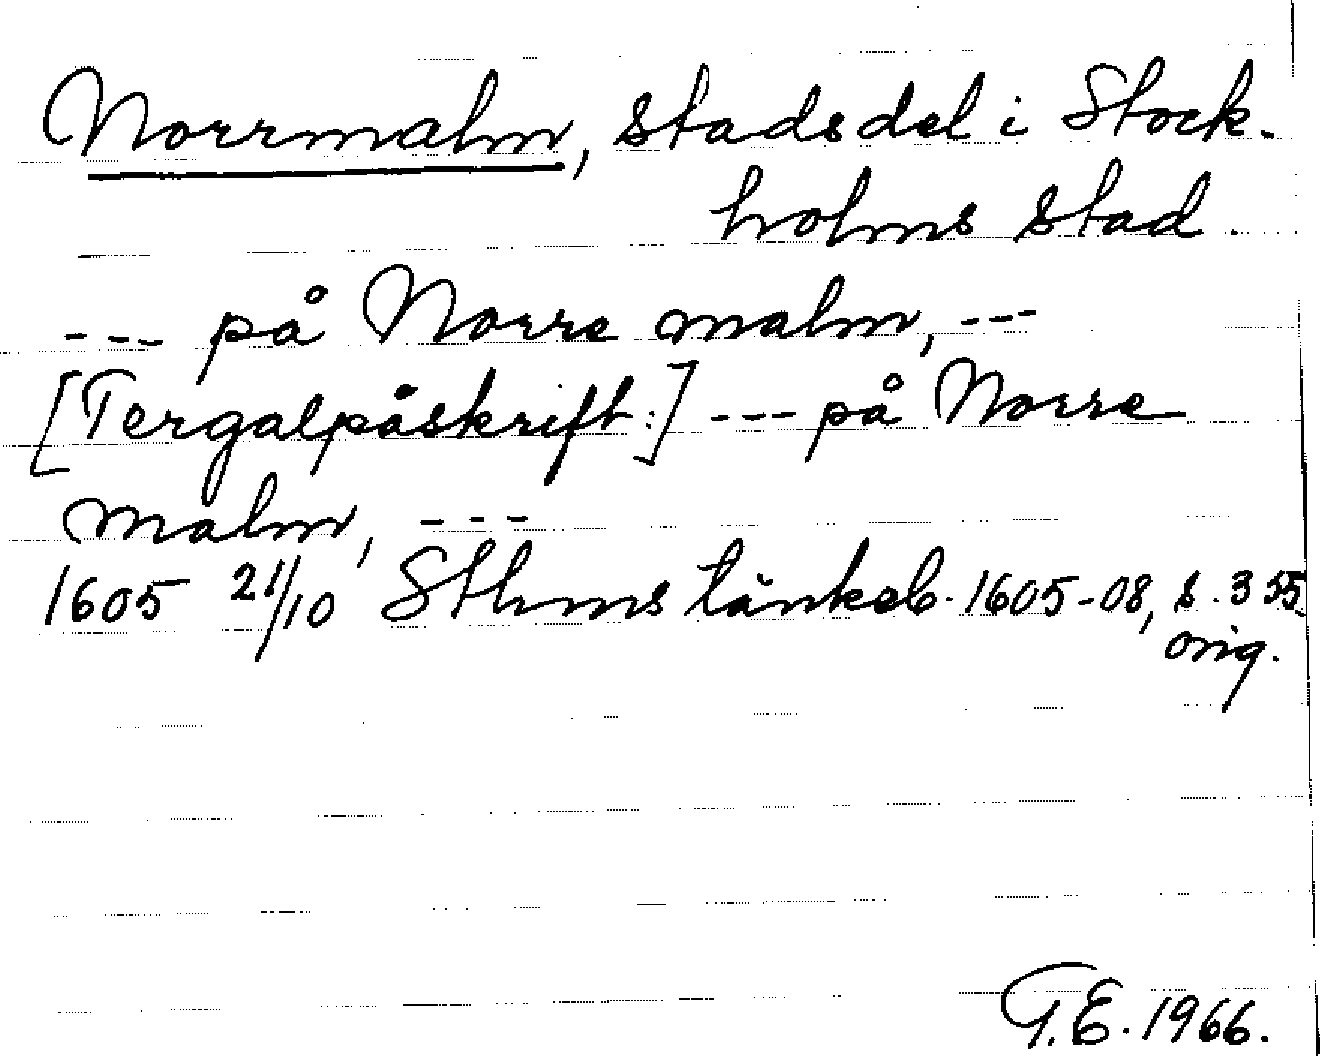 Norrmalm, stadsdel i Stock-
holms stad.
--- på Norre malm, ---
[Tergalpåskrift:] --- på Norre
malm, ---
1605 21/10 Sthms tänkeb. 1605-08, s. 355
orig.
G.E. 1966.